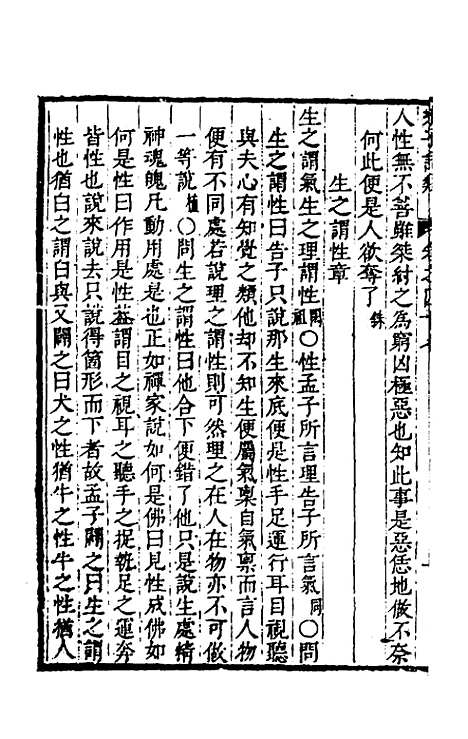 人性無不善雖桀紂之為窮凶極惡也知此事是惡恁地做不奈
何此便是人欲奪了銖
生之謂性章
生之謂氣生之理謂性閎祖○性孟子所言理告子所言氣同○問
生之謂性曰告子只說那生來底便是性手足運行耳目視聽
與夫心有知覺之類他却不知生便屬氣稟自氣稟而言人物
便有不同處若說理之謂性則可然理之在人在物亦不可做
一等說植○問生之謂性曰他合下便錯了他只是說生處精
神魂魄凡動用處是也正如禪家說如何是佛曰見性成佛如
何是性曰作用是性蓋謂目之視耳之聽手之捉執足之運奔
皆性也說來說去只說得箇形而下者故孟子闢之曰生之謂
性也猶白之謂白與又闢之曰犬之性猶牛之性牛之性猶人